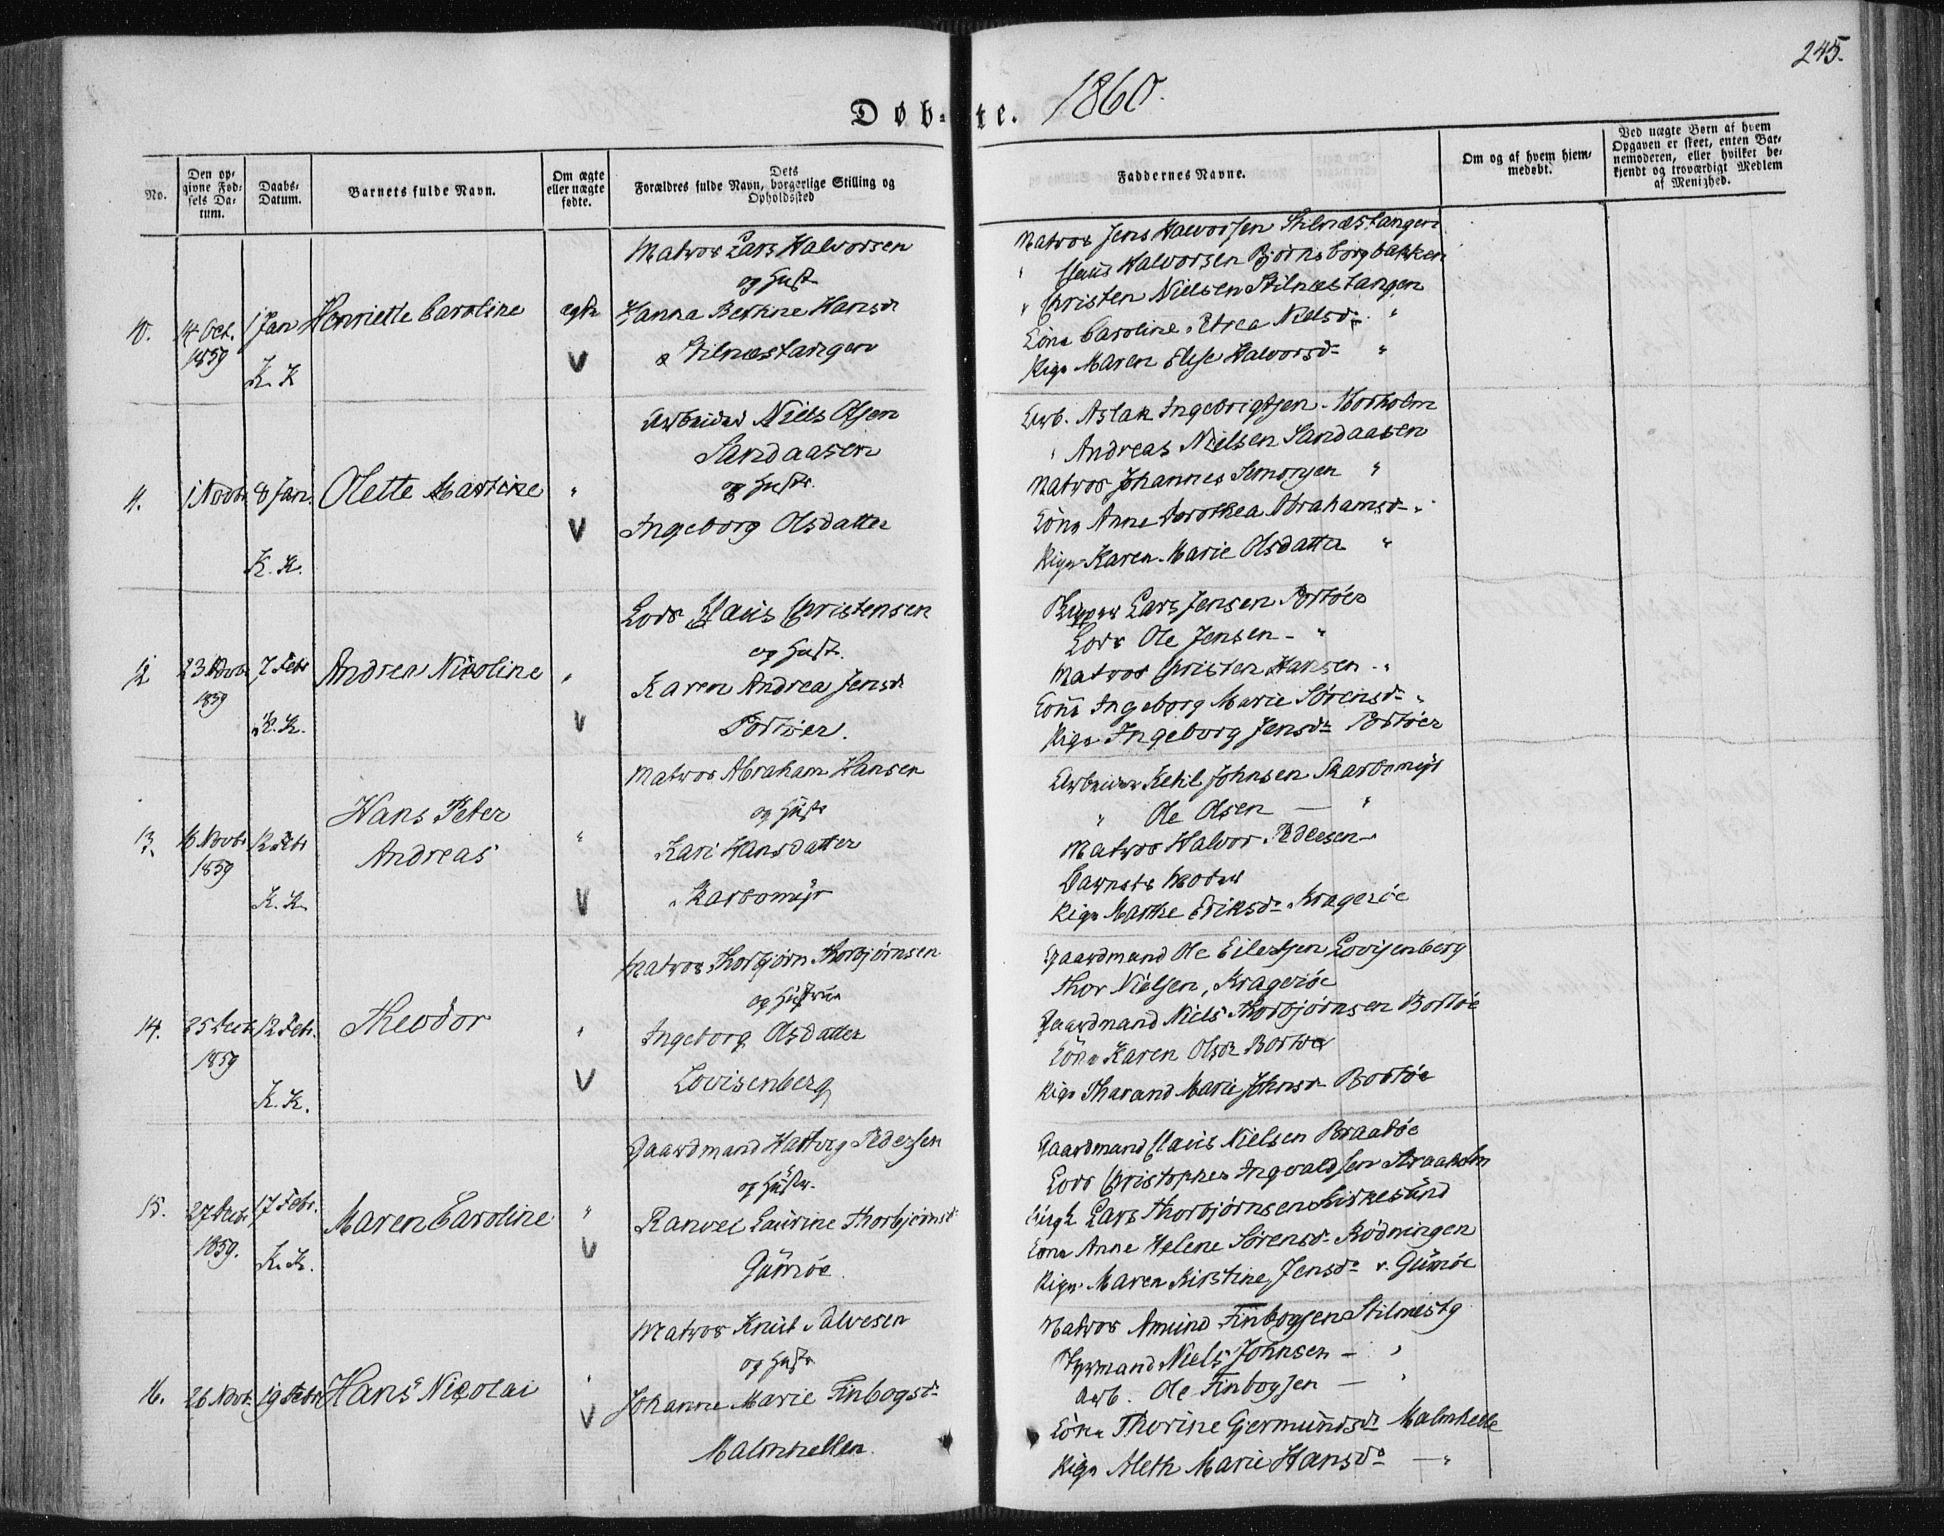 245.
Døb-te. 1860.
No.
Den opgivne Fødsels Datum.
Daabs-Datum.
Barnets fulde Navn.
Om ægte eller uægte fødte.
Dets Forældres fulde Navn, borgerlige Stilling og Opholdssted
Faddernes Navne.
Om og af hvem hjemmedøbt.
Ved uægte Børn af hvem Opgaven er skeet, enten Barnemoderen, eller hvilket bekjendt og troværdigt Medlem af Menighed.
10.
14 Oct.
1859
1 Jan
K. K
Henriette Caroline
ægte
V
Matros Lars Halvorsen
og Hust
Hanna Bertine Hansd
Stilnæstangen
Matros Jens Halvorsen Stilnæstangen
" Claus Halvorsen Bjørnsborgbakken
" Christen Nielsen Stilnæstangen
Kone Caroline Petrea Nielsd "
Pige Maren Elise Halvorsd "
11.
1 Novbr
8 Jan.
K. K.
Olette Martine
"
V
Arbeider Niels Olsen
Sandaasen
og Hustr.
Ingeborg Olsdatter
Arb. Aslak Ingebrigtsen
" Andreas Nielsen Sandaasen
Matros Johannes Simonsen "
Kone Anne Dorothea Abrahamsd "
Pige Karen Marie Olsdatter "
12
23 Novbr
1859
7 Febr
K. K.
Andrea Nicoline
"
V
Lods Claus Christensen
og Hust.
Karen Andrea Jensd
Portøer.
Skipper Lars Jensen Portøer
Lods Ole Jensen - "
Matros Christen Hansen "
Kone Ingeborg Marie Sørensd "
Pige Ingeborg Jensd Portøer
13.
13 Novbr
1859
12 Febr
K. K.
Hans Peter
Andreas
"
V
Matros Abraham Hansen
og Hustr
Kari Hansdatter
Skarbomyr
Arbeider Ketil Johnsen Skarbomyr
" Ole Olsen — "
Matros Halvor Pedersen
Barnets Moder
Pige Marthe Eriksd Kragerøe
14.
25 Decbr
1859
12 Febr.
K. K.
Theodor
"
V
Matros Thorbjørn Thorbjørnsen
og Hustrue
Ingeborg Olsdatter
Lovisenberg
Gaardmand Ole Eilertsen Lovisenberg
Thor Nielsen, Kragerøe
Gaardmand Niels Thorbjørnsen Bortøe
Kone Karen Olsd Bortøe
Pige Tharand Marie Johnsd Bortøe
15.
27 Decbr
1859.
17 Febr.
K. K.
Maren Caroline
"
V
Gaardmand Hartvig Pedersen
og Hustr.
Ranvei Laurine Thorbjørnsd
Gumøe
Gaardmand Claus Nielsen Braatøe
Lods Christopher Ingvaldsen Straaholm
Lars Thorbjørnsen Kirkesund
Kone Anne Helene Sørensd Rødningen
Pige Maren Kirstine Jensd v. Gumøe
16.
26 Novbr.
19 Febr
Hans Nicolai
"
V
Matros Knut Salvesen
og Hustr
Johanne Marie Finbogsd
Malmhellen.
Matros Amund Finbogsen Stilnæstg
Styrmand Niels Johnsen — "
Arb. Ole Finbogsen — "
Kone Thorine Gjermundsd Malmhelle
Pige Aleth Marie Hansd — "